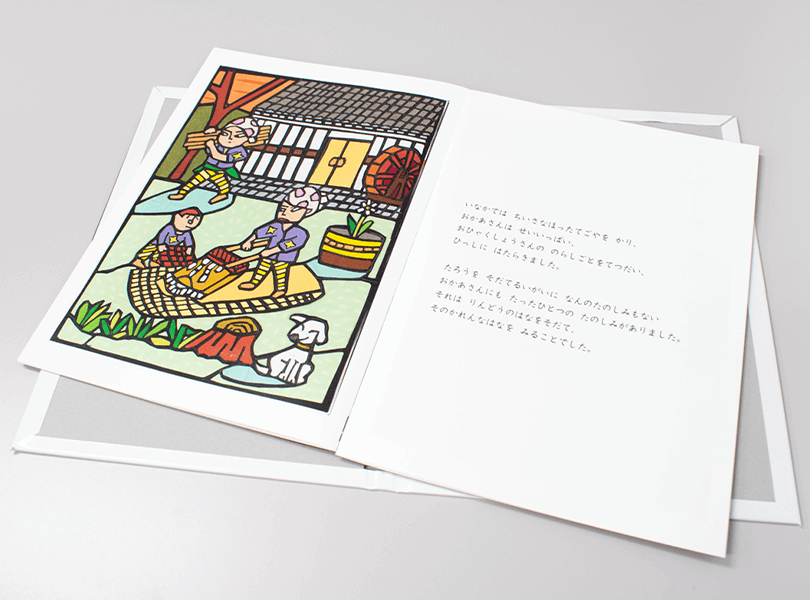 いなかでは ちいさなほったてごやを かり、
おかあさんは せいいっぱい、
おひゃくしょうさんの のらしごとをてつだい、
ひっしに はたらきました。
たろうを そだてるいがいに なんのたのしみもない
おかあさんにも たったひとつの たのしみがありました。
それは りんどうのはなをそだて、
そのかれんなはなを みることでした。